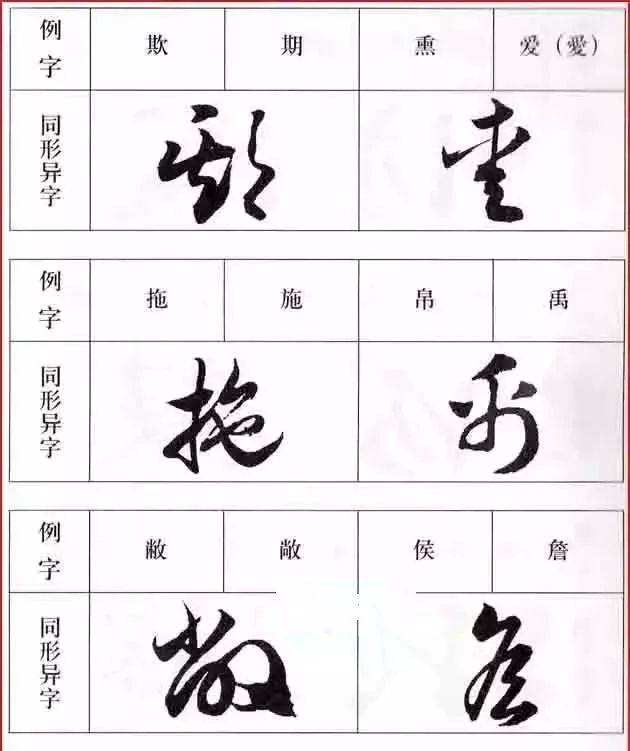 例字 欺 期 熏 爱（愛）
同形异字
例字 拖 施 帛 禹
同形异字
例字 敝 敞 侯 詹
同形异字